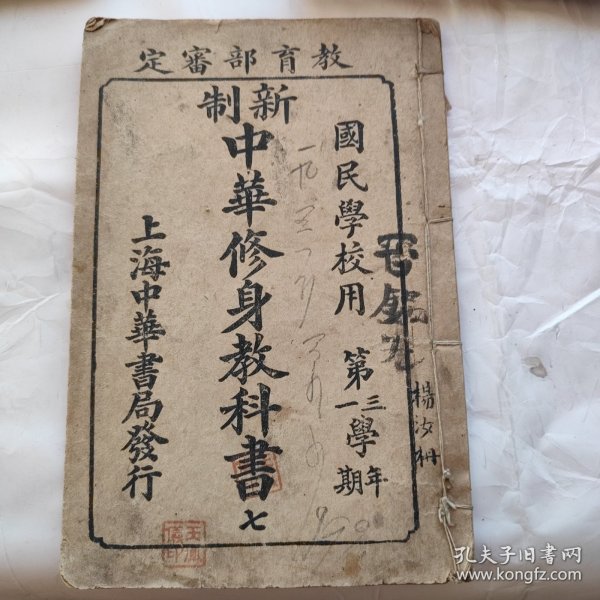 教育部審定
新制
國民學校用 第三學年
第一學期
中華修身教科書 七
上海中華書局發行
楊汝冊
孔夫子旧书网
www.kongfz.com